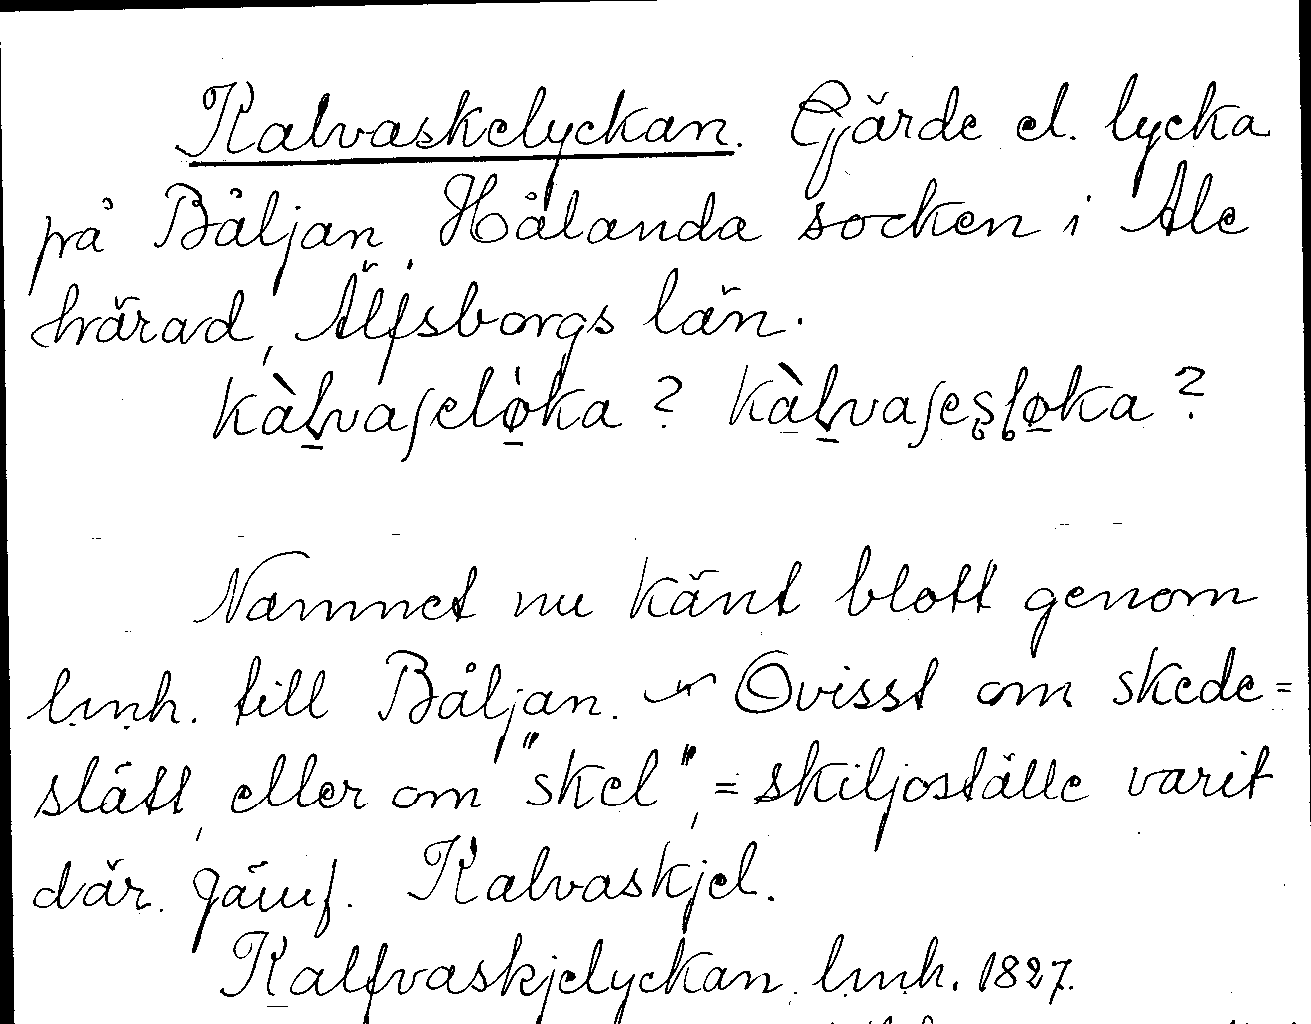 Kalvaskelyckan. Gjärde el. lycka
på Båljan, Hålanda socken i Ale
härad, Älfsborgs län.
kàlvaſelø̀ka? kàlvaſesløka?
Namnet nu känt blott genom
lmh. till Båljan. ~ Ovisst om skede=
slått, eller om "skel", = skiljoställe varit
där. Jämf. Kalvaskjel.
Kalfvaskjelyckan lmh. 1827.